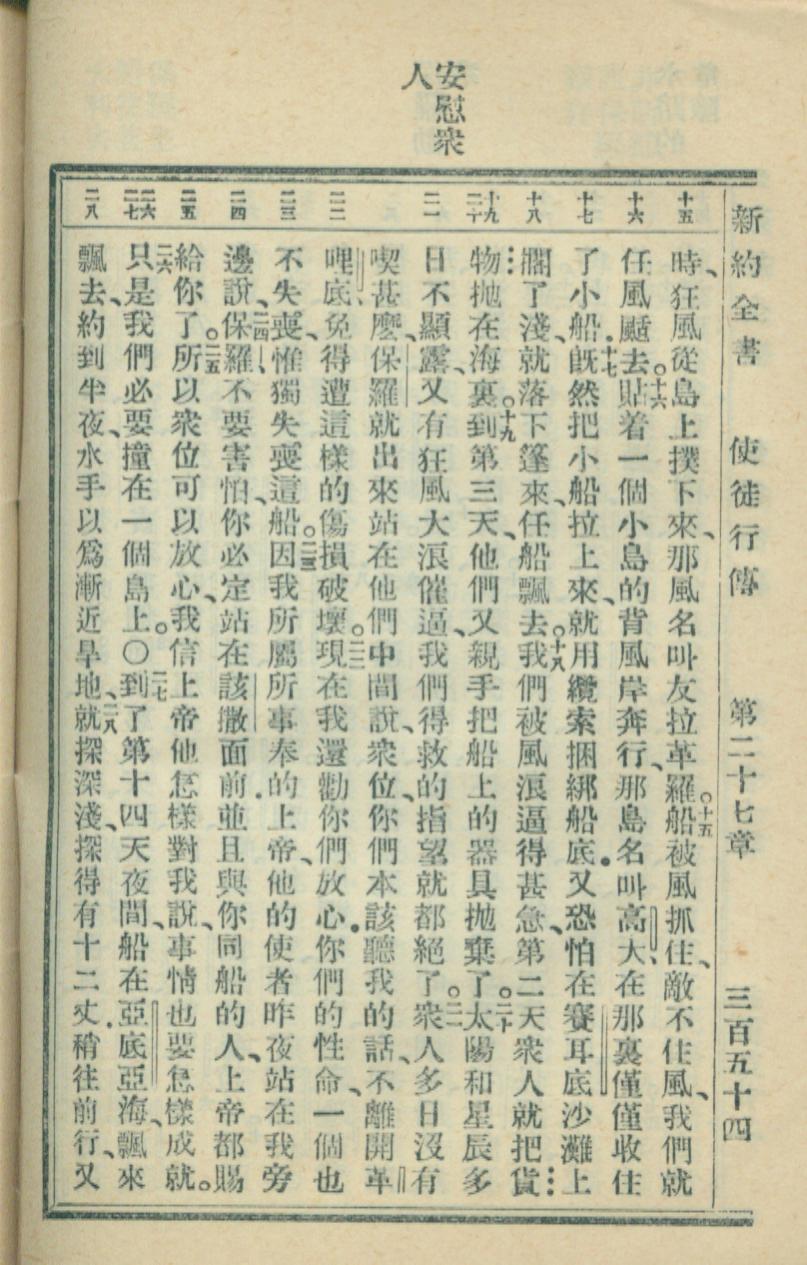 安慰衆
人
新約全書 使徒行傳 第二十七章 三百五十四
十五 時、狂風從島上撲下來、那風名叫友拉革羅。十五船被風抓住、敵不住風、我們就
十六 任風颳去。十六貼着一個小島的背風岸奔行、那島名叫高大、在那裏僅僅收住
十七 了小船.十七旣然把小船拉上來、就用纜索捆綁船底.又恐怕在賽耳底沙灘上
十八 擱了淺、就落下篷來、任船飄去。十八我們被風浪逼得甚急、第二天衆人就把貨
十九 二十 物抛在海裏。十九到第三天、他們又親手把船上的器具抛棄了。二十太陽和星辰多
二一 日不顯露、又有狂風大浪催逼、我們得救的指望就都絕了。二一衆人多日沒有
喫甚麽、保羅就出來站在他們中間說、衆位、你們本該聽我的話、不離開革
二二 哩底、免得遭這樣的傷損破壞。二二現在我還勸你們放心.你們的性命、一個也
二三 不失喪、惟獨失喪這船。二三因我所屬所事奉的上帝、他的使者昨夜站在我旁
二四 邊說、二四保羅、不要害怕、你必定站在該撒面前.並且與你同船的人、上帝都賜
二五 給你了。二五所以衆位可以放心、我信上帝他怎樣對我說、事情也要怎樣成就。
二六 二七 二六只是我們必要撞在一個島上。〇二七到了第十四天夜間、船在亞底亞海、飄來
二八 飄去、約到半夜、水手以爲漸近旱地、二八就探深淺、探得有十二丈.稍往前行、又